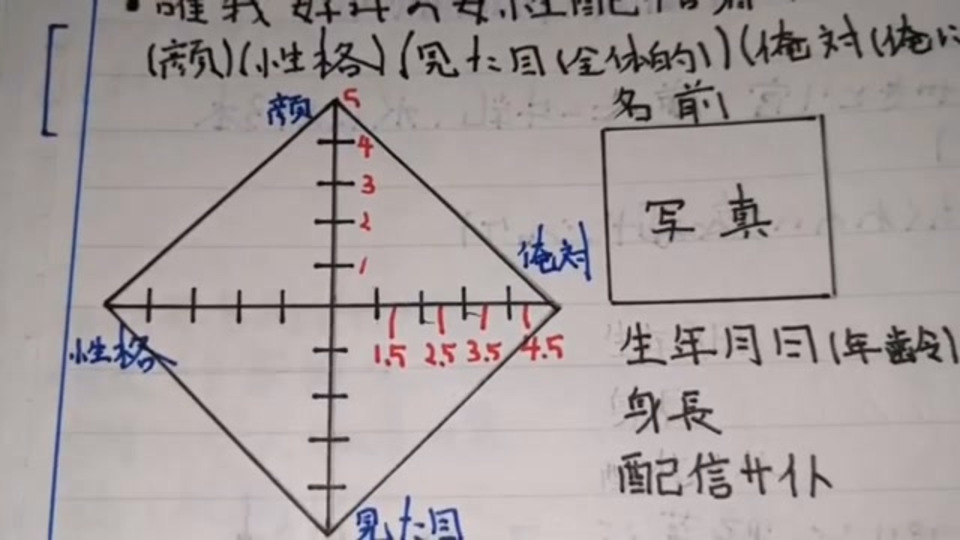 (顔)(性格)(見た目(全体的))(俺対(俺に
名前
顔 5
4
3
2
1
写真
俺対
性格
1.5 2.5 3.5 4.5
生年月日(年齢)
身長
配信サイト
見た目